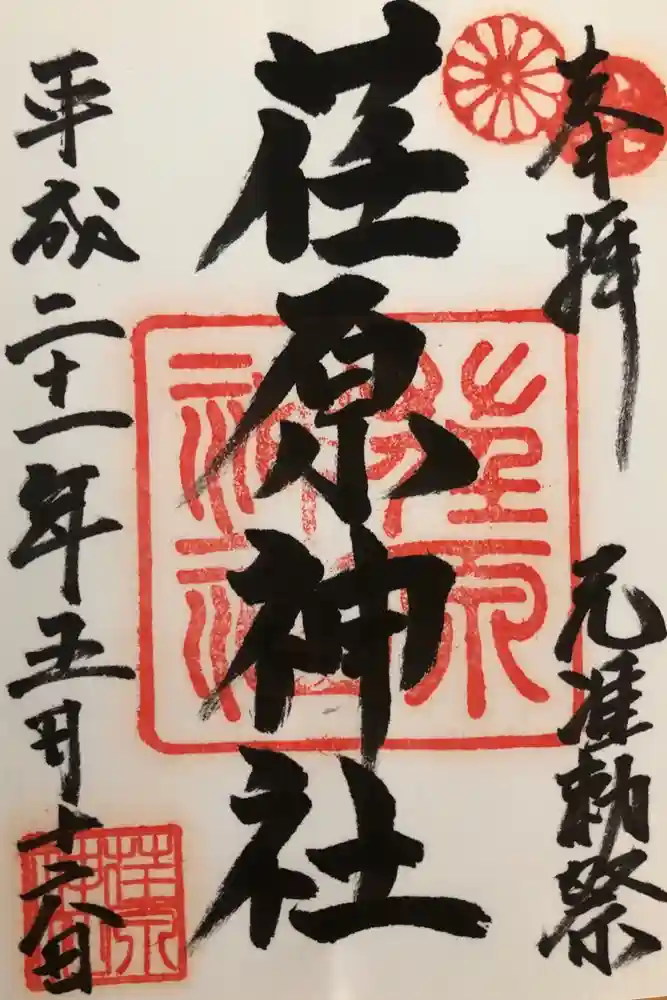 奉拝
元准勅祭
荏原神社
平成二十一年五月十六日
荏原神社